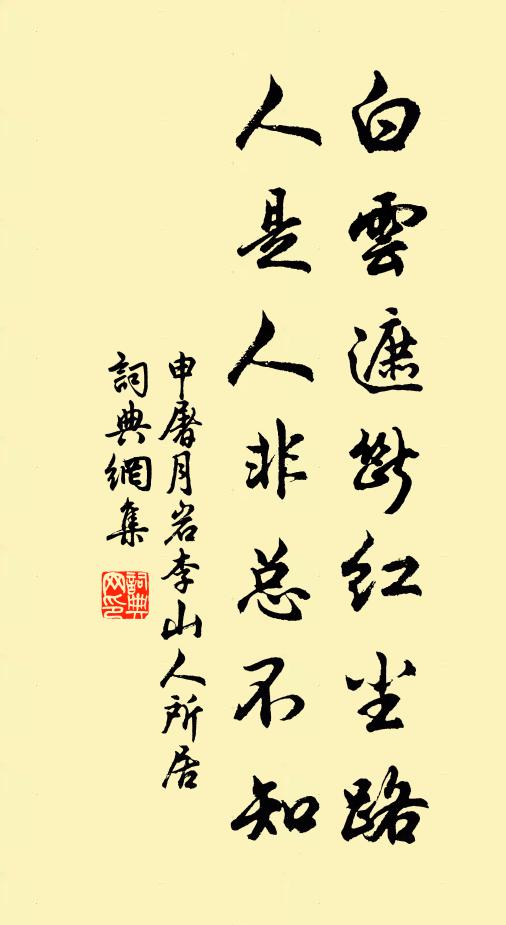 白雲遮斷紅尘路
人是人非总不知
申屠月岩李山人所居
詞典網集
詞典网印